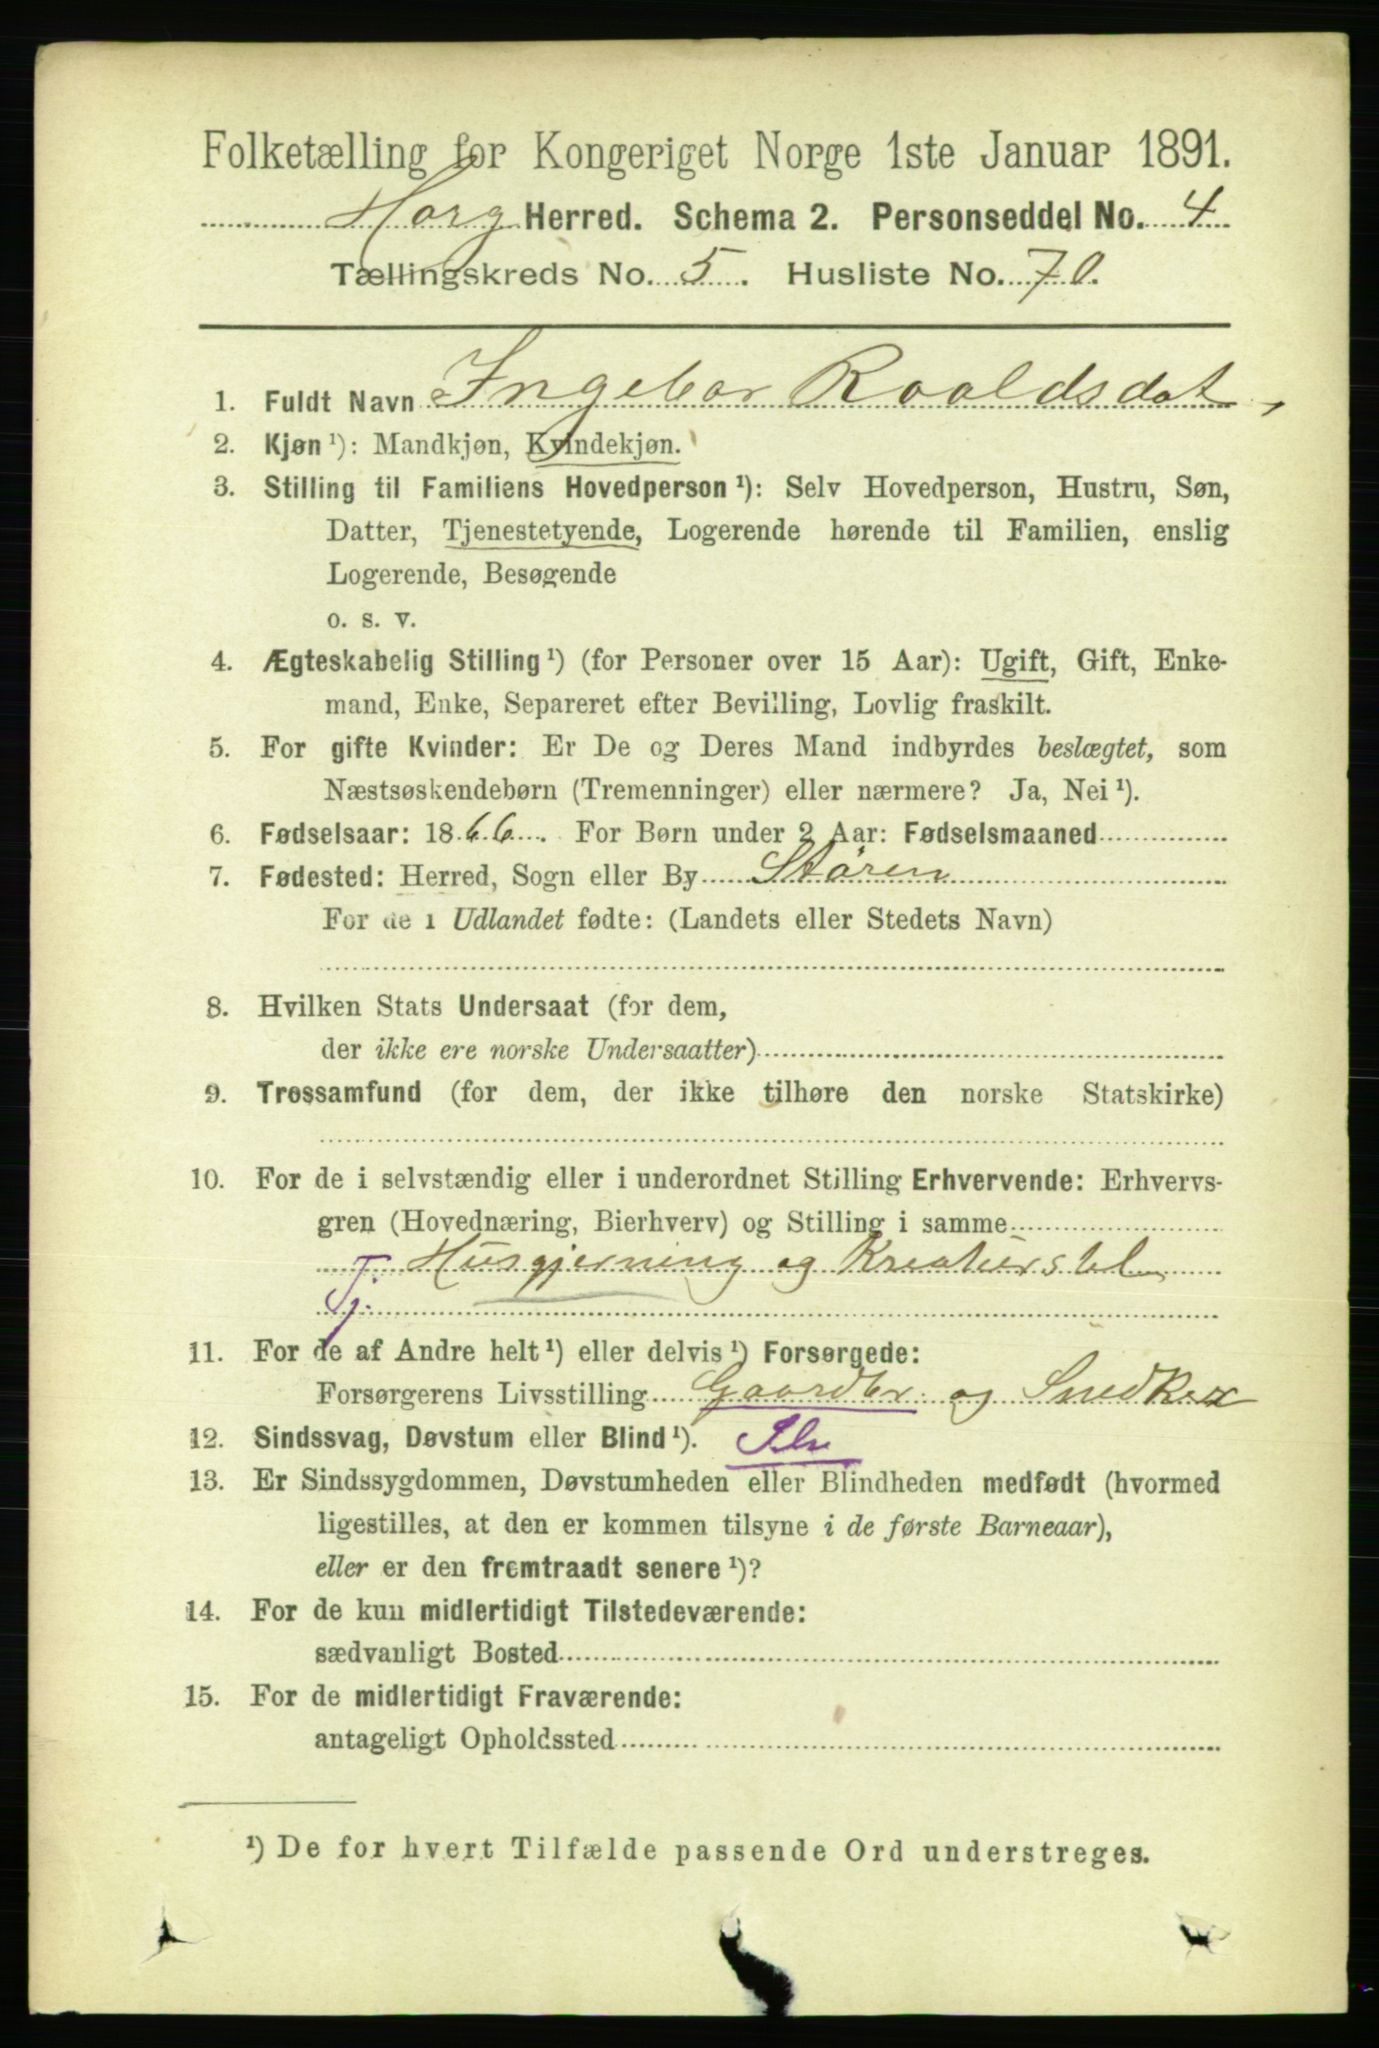 Folketælling for Kongeriget Norge 1ste Januar 1891.
Horg Herred. Schema 2. Personseddel No. 4
Tællingskreds No. 5. Husliste No. 70.
1. Fuldt Navn Ingebor Roaldsdat,
2. Kjøn ¹): Mandkjøn, Kvindekjøn.
3. Stilling til Familiens Hovedperson ¹): Selv Hovedperson, Hustru, Søn,
Datter, Tjenestetyende, Logerende hørende til Familien, enslig
Logerende, Besøgende
o. s. v.
4. Ægteskabelig Stilling ¹) (for Personer over 15 Aar): Ugift, Gift, Enke-
mand, Enke, Separeret efter Bevilling, Lovlig fraskilt.
5. For gifte Kvinder: Er De og Deres Mand indbyrdes beslægtet, som
Næstsøskendebørn (Tremenninger) eller nærmere? Ja, Nei ¹).
6. Fødselsaar: 1866. For Børn under 2 Aar: Fødselsmaaned
7. Fødested: Herred, Sogn eller By Støren
For de i Udlandet fødte: (Landets eller Stedets Navn)
8. Hvilken Stats Undersaat (for dem,
der ikke ere norske Undersaatter)
9. Trossamfund (for dem, der ikke tilhøre den norske Statskirke)
10. For de i selvstændig eller i underordnet Stilling Erhvervende: Erhvervs-
gren (Hovednæring, Bierhverv) og Stilling i samme
T. Husgjerning og Kreaturstel
Tj.
11. For de af Andre helt ¹) eller delvis ¹) Forsørgede:
Forsørgerens Livsstilling Gaardbr. og Snedker
12. Sindssvag, Døvstum eller Blind ¹).
13. Er Sindssygdommen, Døvstumheden eller Blindheden medfødt (hvormed
ligestilles, at den er kommen tilsyne i de første Barneaar),
eller er den fremtraadt senere ¹)?
14. For de kun midlertidigt Tilstedeværende:
sædvanligt Bosted
15. For de midlertidigt Fraværende:
antageligt Opholdssted
¹) De for hvert Tilfælde passende Ord understreges.